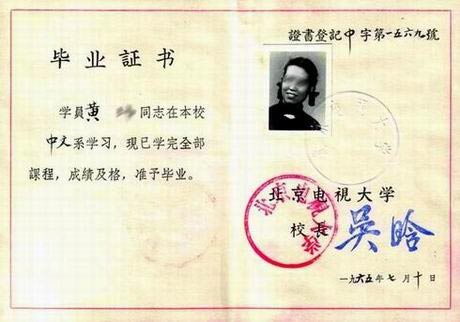 毕业証书
学員黄 同志在本校
中文系学习，現已学完全部
課程，成績及格，准予毕业。
證書登記中字第一五六九號
北京电視大学
校長 吳晗
一九六五年七月十日
北京电視大学